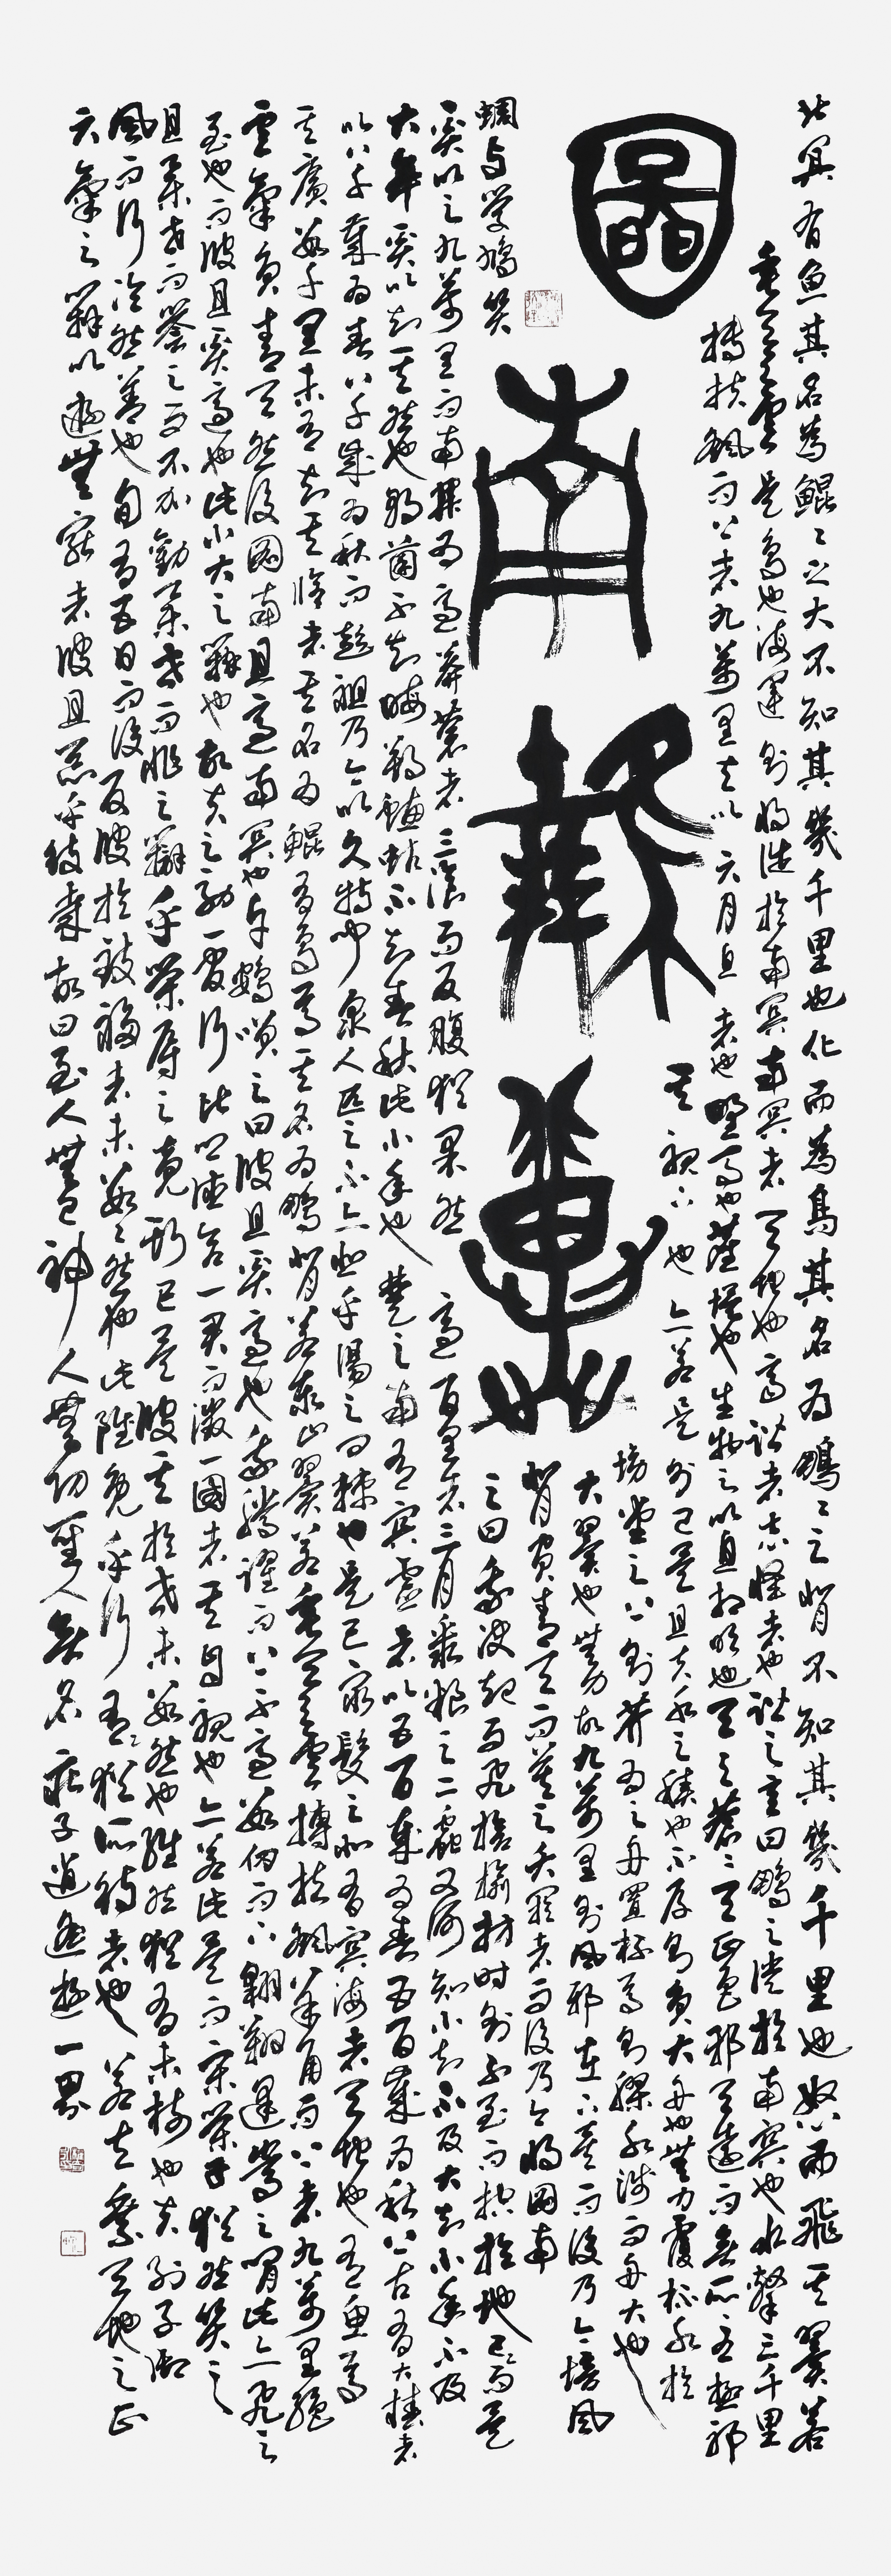 北冥有魚其名為鯤〻之大不知其幾千里也化而為鳥其名為鵬〻之背不知其幾千里也怒而飛其翼若
垂天之雲是鳥也海運則將徙於南冥南冥者天池也齊諧者志怪者也諧之言曰鵬之徙於南冥也水擊三千里
摶扶搖而上者九萬里去以六月息者也野馬也塵埃也生物之以息相吹也天之蒼〻其正色邪其遠而無所至極邪
其視下也亦若是則已矣且夫水之積也不厚則負大舟也無力覆杯水於
坳堂之上則芥為之舟置杯焉則膠水淺而舟大也
大翼也無力故九萬里則風斯在下矣而後乃今培風
背負青天而莫之夭閼者而後乃今將圖南
圖南
蜩與學鳩笑
之曰我決起而飛搶榆枋時則不至而控於地已而矣
奚以之九萬里而南為適莽蒼者三飡而反腹猶果然適百里者三月聚糧之二蟲又何知小知不及大知小年不及
大年奚以知其然也朝菌不知晦朔蟪蛄不知春秋此小年也楚之南有冥靈者以五百歲為春五百歲為秋上古有大椿者
以八千歲為春八千歲為秋而彭祖乃今以久特聞眾人匹之不亦悲乎湯之問棘也是已窮髮之北有冥海者天池也有魚焉
其廣數千里未有知其脩者其名為鯤有鳥焉其名為鵬背若泰山翼若垂天之雲摶扶搖羊角而上者九萬里絕
雲氣負青天然後圖南且適南冥也斥鴳笑之曰彼且奚適也我騰躍而上不過數仞而下翱翔蓬蒿之間此亦飛之
至也而彼且奚適也此小大之辯也故夫知效一官行比一鄉德合一君而徵一國者其自視也亦若此矣而宋榮子猶然笑之
且舉世而譽之而不加勸舉世而非之辯乎榮辱之竟斯已矣彼其於世未數然也雖然猶有未樹也夫列子御
風而行泠然善也旬有五日而後反彼於致福者未數〻然也此雖免乎行猶有所待者也若夫乘天地之正
六氣之辯以遊無窮者彼且惡乎待哉故曰至人無己神人無功聖人無名莊子逍遙遊一